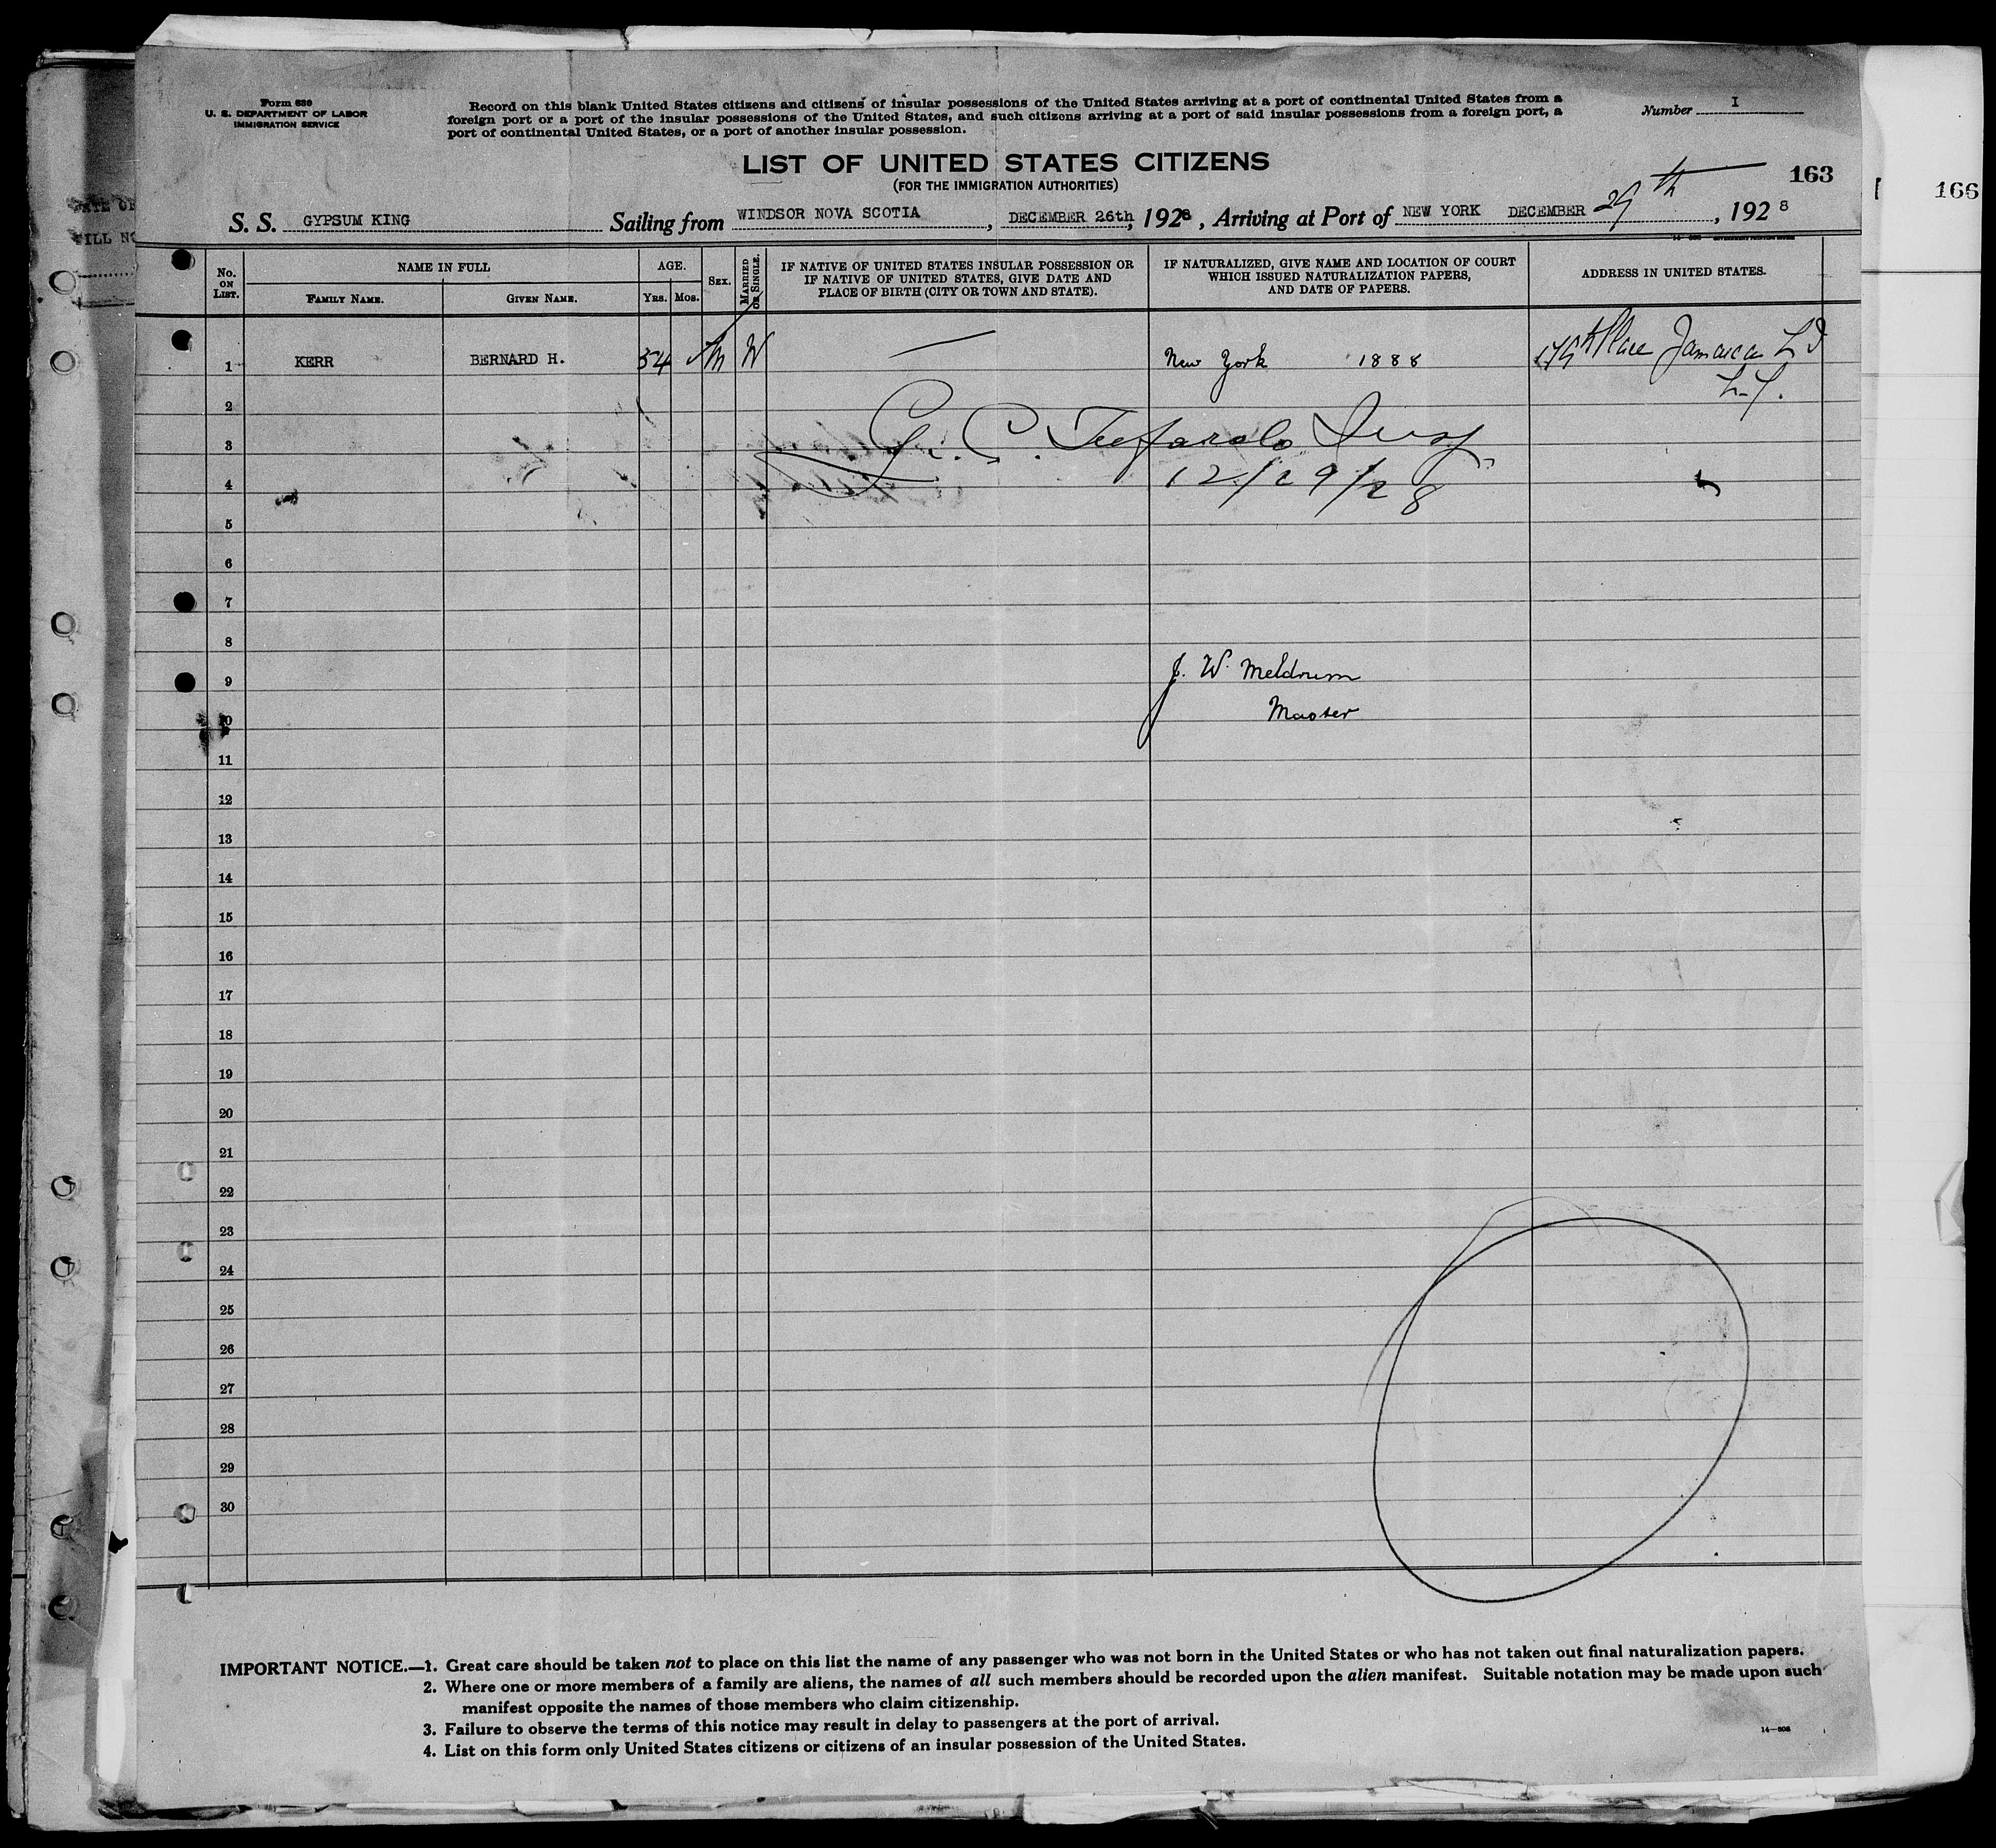 Form 630
U. S. DEPARTMENT OF LABOR
IMMIGRATION SERVICE
Record on this blank United States citizens and citizens of insular possessions of the United States arriving at a port of continental United States from a
foreign port or a port of the insular possessions of the United States, and such citizens arriving at a port of said insular possessions from a foreign port, a
port of continental United States, or a port of another insular possession.
Number I
LIST OF UNITED STATES CITIZENS
(FOR THE IMMIGRATION AUTHORITIES)
163
166
S. S. GYPSUM KING Sailing from WINDSOR NOVA SCOTIA, DECEMBER 26th, 1928, Arriving at Port of NEW YORK DECEMBER 29th, 1928
No. ON LIST.
NAME IN FULL
FAMILY NAME.
GIVEN NAME.
AGE.
YRS. MOS.
SEX.
MARRIED OR SINGLE.
IF NATIVE OF UNITED STATES INSULAR POSSESSION OR
IF NATIVE OF UNITED STATES, GIVE DATE AND
PLACE OF BIRTH (CITY OR TOWN AND STATE).
IF NATURALIZED, GIVE NAME AND LOCATION OF COURT
WHICH ISSUED NATURALIZATION PAPERS,
AND DATE OF PAPERS.
ADDRESS IN UNITED STATES.
1 KERR BERNARD H. 54 M W — New York 1888 Place Jamaica
2
3 G. C.
4 12/29/28
5
6
7
8
9 J. W. Meldrum
10 Master
11
12
13
14
15
16
17
18
19
20
21
22
23
24
25
26
27
28
29
30
IMPORTANT NOTICE.—1. Great care should be taken not to place on this list the name of any passenger who was not born in the United States or who has not taken out final naturalization papers.
2. Where one or more members of a family are aliens, the names of all such members should be recorded upon the alien manifest. Suitable notation may be made upon such
manifest opposite the names of those members who claim citizenship.
3. Failure to observe the terms of this notice may result in delay to passengers at the port of arrival.
4. List on this form only United States citizens or citizens of an insular possession of the United States.